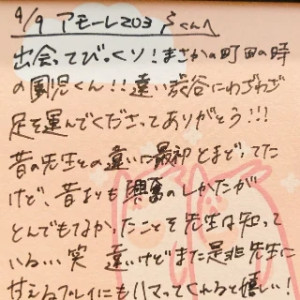 4/9 アモーレ203 さくんへ
出会ってびっくり！まさかの町田の時
の園児くん！！遠い渋谷にわざわざ
足を運んでくださってありがとう！！
昔の先生との違いに最初とまどってた
けど、昔よりも興奮のしかたが
とんでもなかったことを先生は知って
いるぃ、笑 遠いけどまた是非先生に
甘えるプレイにもハマってくれると嬉しい！